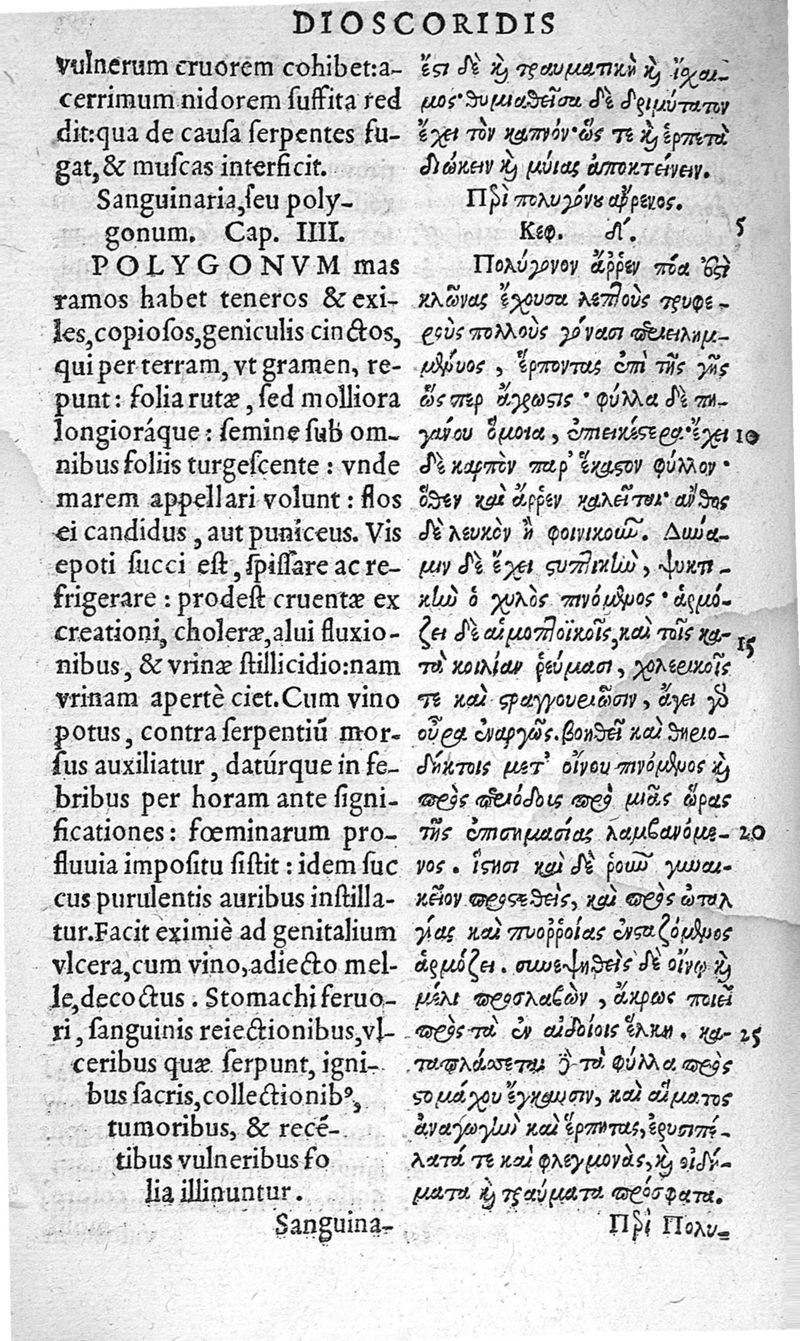 DIOSCORIDIS
vulnerum cruorem cohibet:a-
cerrimum nidorem ſuffita red
dit:qua de cauſa ſerpentes fu-
gat, & muſcas interficit.
Sanguinaria, ſeu poly-
gonum. Cap. IIII.
POLYGONVM mas
ramos habet teneros & exi-
les, copioſos, geniculis cinctos,
qui per terram, vt gramen, re-
punt: folia rutæ, ſed molliora
longioráque: ſemine ſub om-
nibus foliis turgeſcente: vnde
marem appellari volunt: flos
ei candidus, aut puniceus. Vis
epoti ſucci eſt, ſpiſſare ac re-
frigerare: prodeſt cruentæ ex
creationi, choleræ, alui fluxio-
nibus, & vrinæ ſtillicidio: nam
vrinam apertè ciet. Cum vino
potus, contra ſerpentiũ mor-
ſus auxiliatur, datúrque in fe-
bribus per horam ante ſigni-
ficationes: fœminarum pro-
fluuia impoſitu ſiſtit: idem ſuc
cus purulentis auribus inſtilla-
tur. Facit eximiè ad genitalium
vlcera, cum vino, adiecto mel-
le, decoctus. Stomachi feruo-
ri, ſanguinis reiectionibus, vl-
ceribus quæ ſerpunt, igni-
bus ſacris, collectionibꝰ,
tumoribus, & recẽ-
tibus vulneribus fo
lia illinuntur.
Sanguina-
ἔςι δὲ ϗ τραυματικὴ ϗ ἴχαι-
μος· θυμιαθεῖσα δὲ δριμύτατον
ἔχει τὸν καπνόν· ὥς τε ϗ ἑρπετὰ
διώκειν ϗ μύιας ἀποκτείνειν.
Πεὶ πολυγόνου ἄῤῥενος.
Κεφ. δ'. 5
Πολύγονον ἄῤῥεν πόα ἐςὶ
κλῶνας ἔχουσα λεπτοὺς τρυφε-
ροὺς πολλοὺς γόνασι περιειλημ-
μένους, ἕρποντας ἐπὶ τῆς γῆς
ὥς περ ἄγρωσις· φύλλα δὲ πη-
γάνου ὅμοια, ἐπιεικέςερα· ἔχει 10
δὲ καρπὸν παρ' ἕκαςον φύλλον·
ὅθεν καὶ ἄῤῥεν καλεῖται· ἄνθος
δὲ λευκὸν ἢ φοινικοῦν. Δύνα-
μιν δὲ ἔχει ςυπτικὴν, ψυκτι-
κὴν ὁ χυλὸς πινόμενος· ἁρμό-
ζει δὲ αἱμοπτοϊκοῖς, καὶ τοῖς κα- 15
τὰ κοιλίαν ῥεύμασι, χολερικοῖς
τε καὶ ςραγγουριῶσιν, ἄγει γὸ
οὖρα ἐναργῶς. βοηθεῖ καὶ θηριο-
δήκτοις μετ' οἴνου πινόμενος ϗ
πρὸς περιόδοις πρὸ μιᾶς ὥρας
τῆς ἐπισημασίας λαμβανόμε- 20
νος. ἵςησι καὶ δὲ ῥοῦν γυναι-
κεῖον προςτεθεὶς, καὶ πρὸς ὠταλ
γίας καὶ πυοῤῥοίας ἐνςαζόμενος
ἁρμόζει. συνεψηθεὶς δὲ οἴνῳ ϗ
μέλι προσλαβὼν, ἄκρως ποιεῖ
πρὸς τὰ ἐν αἰδοίοις ἕλκη. κα- 25
ταπλάσσεται δὲ τὰ φύλλα πρὸς
ςομάχου ἔγκαυσιν, καὶ αἵματος
ἀναγωγὴν καὶ ἕρπητας, ἐρυσιπέ-
λατά τε καὶ φλεγμονὰς, ϗ οἰδή-
ματα ϗ τραύματα πρόσφατα.
Πεὶ Πολυ-